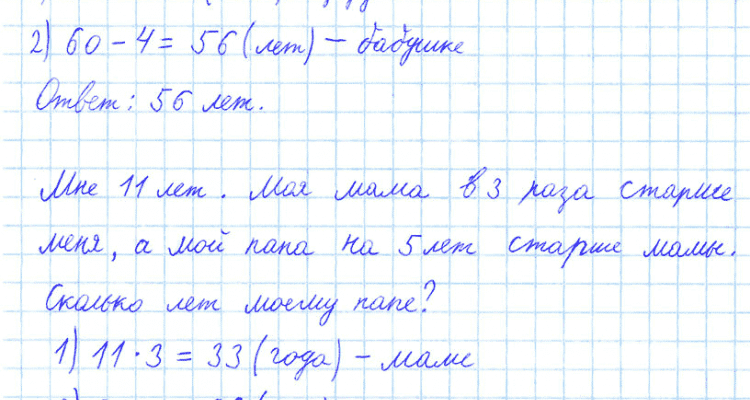 2) 60 - 4 = 56 (лет) - бабушке
Ответ: 56 лет.
Мне 11 лет. Моя мама в 3 раза старше
меня, а мой папа на 5 лет старше мамы.
Сколько лет моему папе?
1) 11 · 3 = 33 (года) - маме